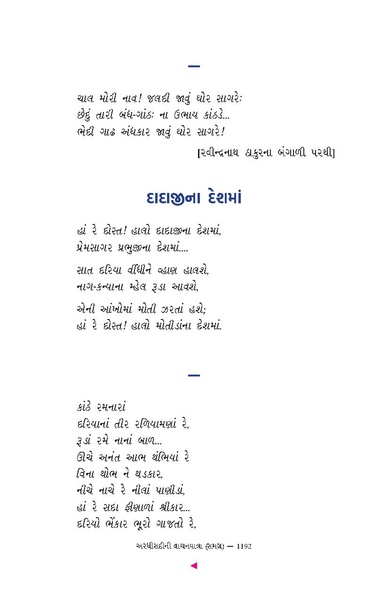 ચાલ મોરી નાવ! જલદી જાવું ઘોર સાગરેઃ
છેદું તારી બંધ-ગાંઠઃ ના ઉભાય કાંઠડે...
ભેદી ગાઢ અંધકાર જાવું ઘોર સાગરે!
[રવીન્દ્રનાથ ઠાકુરના બંગાળી પરથી]
દાદાજીના દેશમાં
હાં રે દોસ્ત! હાલો દાદાજીના દેશમાં,
પ્રેમસાગર પ્રભુજીના દેશમાં....
સાત દરિયા વીંધીને વ્હાણ હાલશે,
નાગ-કન્યાના મ્હેલ રૂડા આવશે,
એની આંખોમાં મોતી ઝરતાં હશે;
હાં રે દોસ્ત! હાલો મોતીડાંના દેશમાં.
કાંઠે રમનારાં
દરિયાનાં તીર રળિયામણાં રે,
રૂડાં રમે નાનાં બાળ...
ઊંચે અનંત આભ થંભિયાં રે
વિના થોભ ને થડકાર,
નીચે નાચે રે નીલાં પાણીડાં,
હાં રે સદા ફીણાળાં શ્રીકાર...
દરિયો ભેંકાર ભૂરો ગાજતો રે,
અરધીસદીની વાચનયાત્રા (સમગ્ર) — 1192